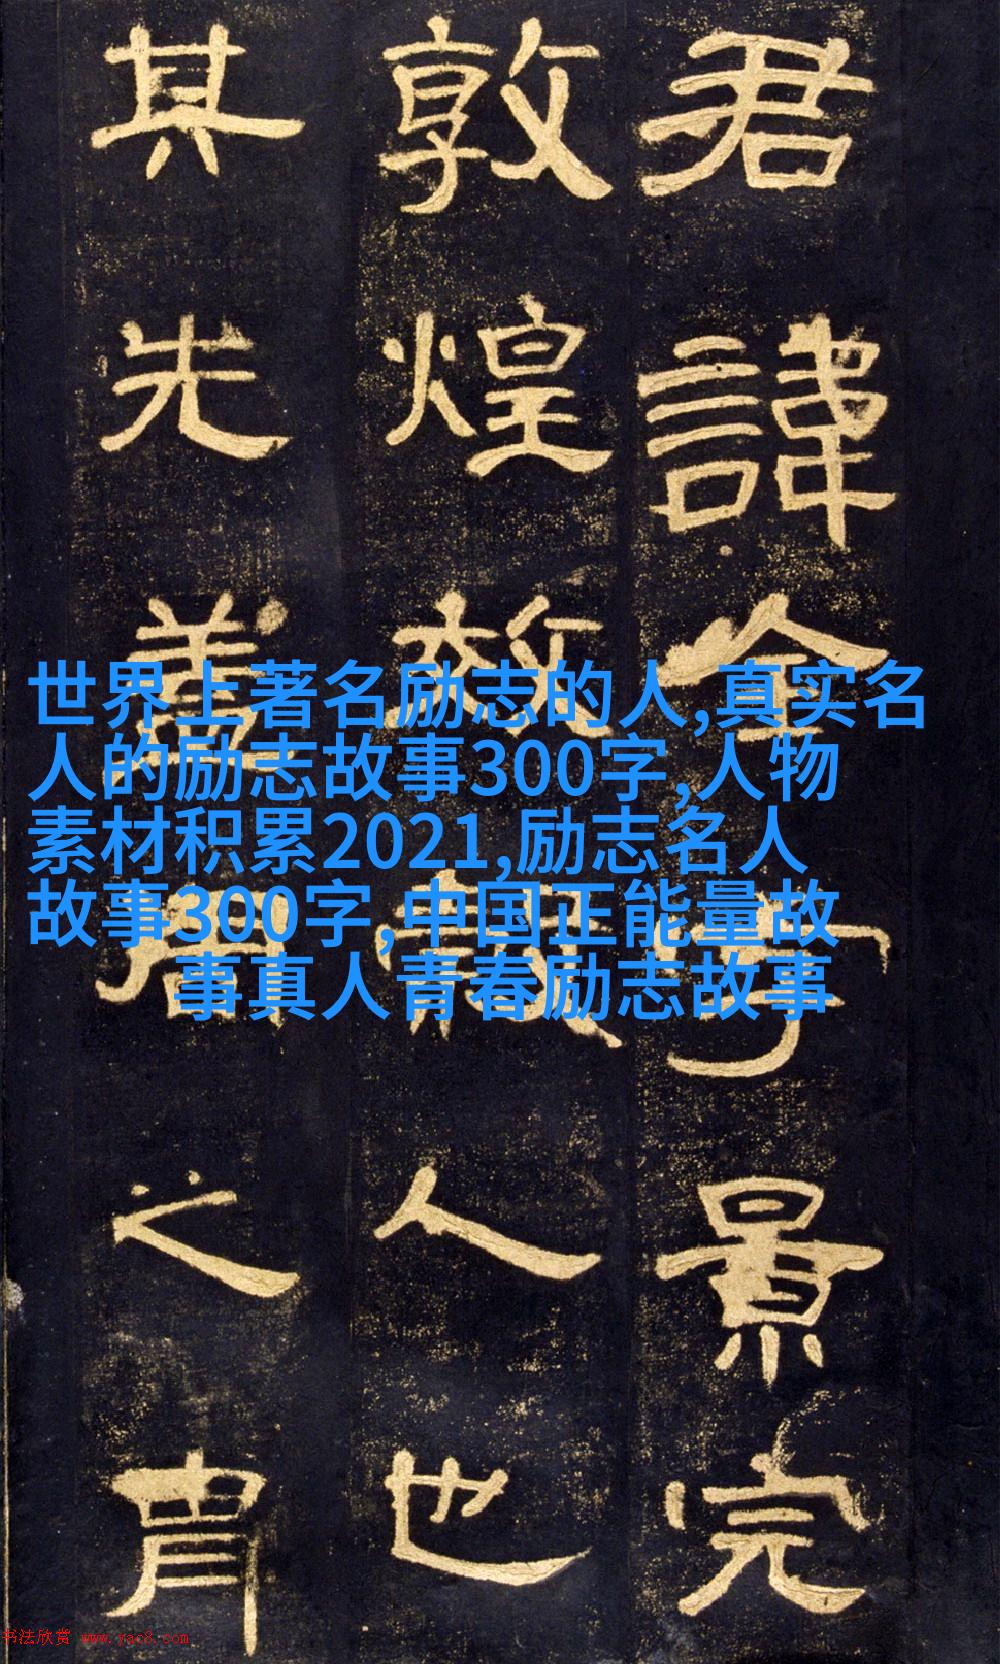 君諱全字景完
敦煌效穀人也
其先蓋周之胄
世界上著名励志的人,真实名
人的励志故事300字,人物
素材积累2021,励志名人
故事300字,中国正能量故
事真人青春励志故事
书法欣赏 www.yac8.com